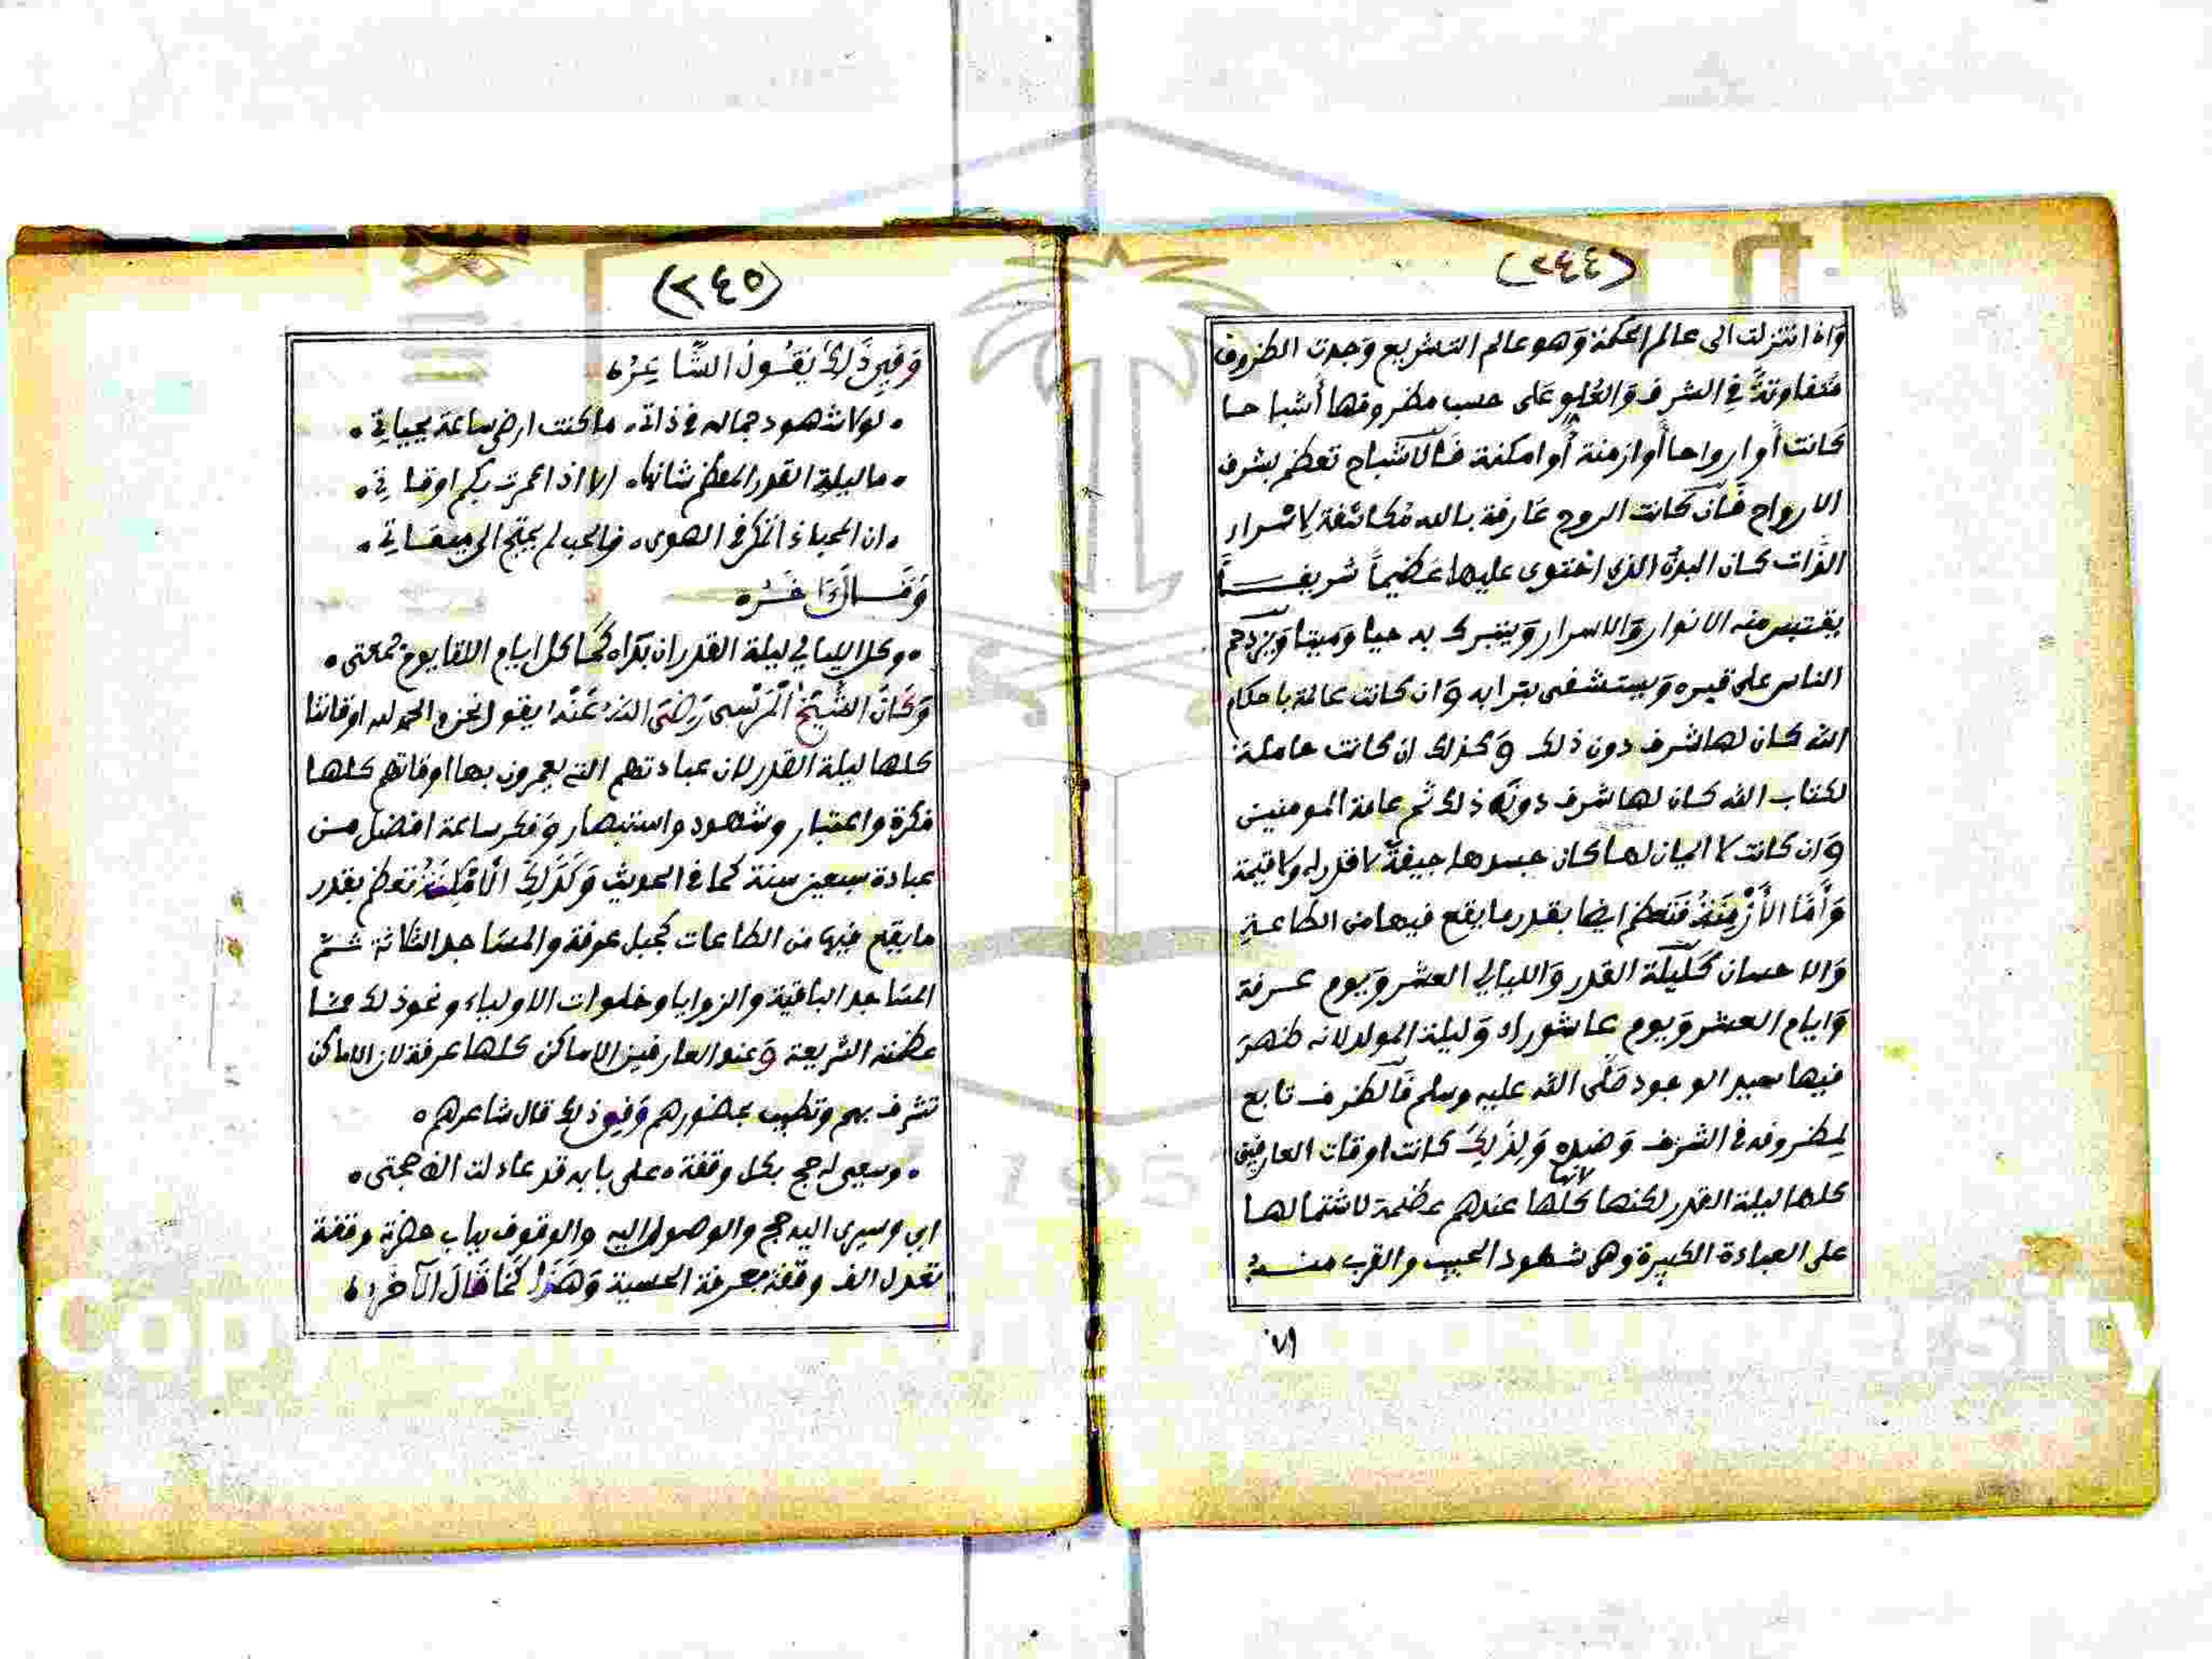 (٢٤٤)
وَاذا تنزلت الى عالم الحكمة وَهو عالم التشريع وَجدت الظروف
متفاوتةً في الشرف وَالعُلو عَلى حسب مظروفها أشباحا
كانت أوارواحا أوازمنة أوامكنة فَالاشباح تعظم بشرف
الارواح فَان كانت الروح عَارفة بالله مُكاشفة لاسرار
الذَّات كان البدن الذى احتوى عليها عَظيماً شريفاً
يقتبس منه الانوار وَالاسرار وَيتبرك به حيا وَميتا وَيزدحم
الناس على قبره وَيستشفى بترابه وَان كانت عالمة باحكام
الله كان لها شرف دون ذلك وَكذلك ان كانت حاملة
لكتاب الله كان لها شرف دونَه ذلك ثم عامة المومنين
وَان كانت لا ايمان لها كان جسدها جيفةً لا قدر له ولا قيمة
وَأَمَّا الأَزْمِنَةُ فَتَعظم ايضا بقدر ما يقع فيها من الطاعةِ
وَالاحسان كَلَيلة القدر وَالليالي العشر وَيوم عرفة
وَايام العشر وَيوم عاشوراء وَليلة المولد لانه ظهرَ
فيها سيد الوجود صَلَّى الله عليه وسلم فَالظروف تابع
لمظروفه في الشرف وَضده وَلِذَلِكَ كانت اوقات العارفين
كلها ليلة القدر لكنها لانها كلها عندهم عظيمة لاشتمالها
على العبادة الكبيرة وهى شهود الحبيب والقرب منه
(٢٤٥)
وَفِي ذَلِكَ يَقُولُ الشَّاعِرُ ه
• لولا شهود جماله في ذاتى • ما كنت ارضى ساعة بحياتي •
• ما ليلة القدر المعظم شانها • الا اذا عمرت بكم اوقاتي •
• ان المحب اذا تمكن في الهوى • والحب لم يحتج الى ميقاتي •
وَقَالَ ءَاخَرُ ه
• وكل الليالي ليلة القدر ان بدا • كَمَا كل ايام اللقا يوم جمعتى •
وَكَانَ الشَّيْخُ الْمَرْسِى رَضِىَ اللهُ عَنْهُ يقول نحن والحمد لله اوقاتنا
كلها ليلة القدر لان عبادتهم التى يعمرون بها اوقاتهم كلها
فكرة واعتبار وشهود واستبصار وَفكر ساعة افضل من
عبادة سبعين سنة كما في الحديث وَكَذَلِكَ الأَمْكِنَةُ تعظم بقدر
ما يقع فيها من الطاعات كجبل عرفة والمساجد الثلاثة ثم
المساجد الباقية والزوايا وخلوات الاولياء ونحو ذلك مما
عظمته الشريعة وَعند العارفين الاماكن كلها عرفة لان الاماكن
تشرف بهم وتطيب بحضورهم وَفي ذلك قال شاعرهم ه
• وسعيى له حج بكل وقفة • على بابه قد عادلت الف حجتى •
اى وسيرى اليه حج والوصول اليه والوقوف بباب حضرته وقفة
تعدل الف وقفة بعرفة الحسية وَهَذَا كَمَا قَالَ الآخَرُ ه